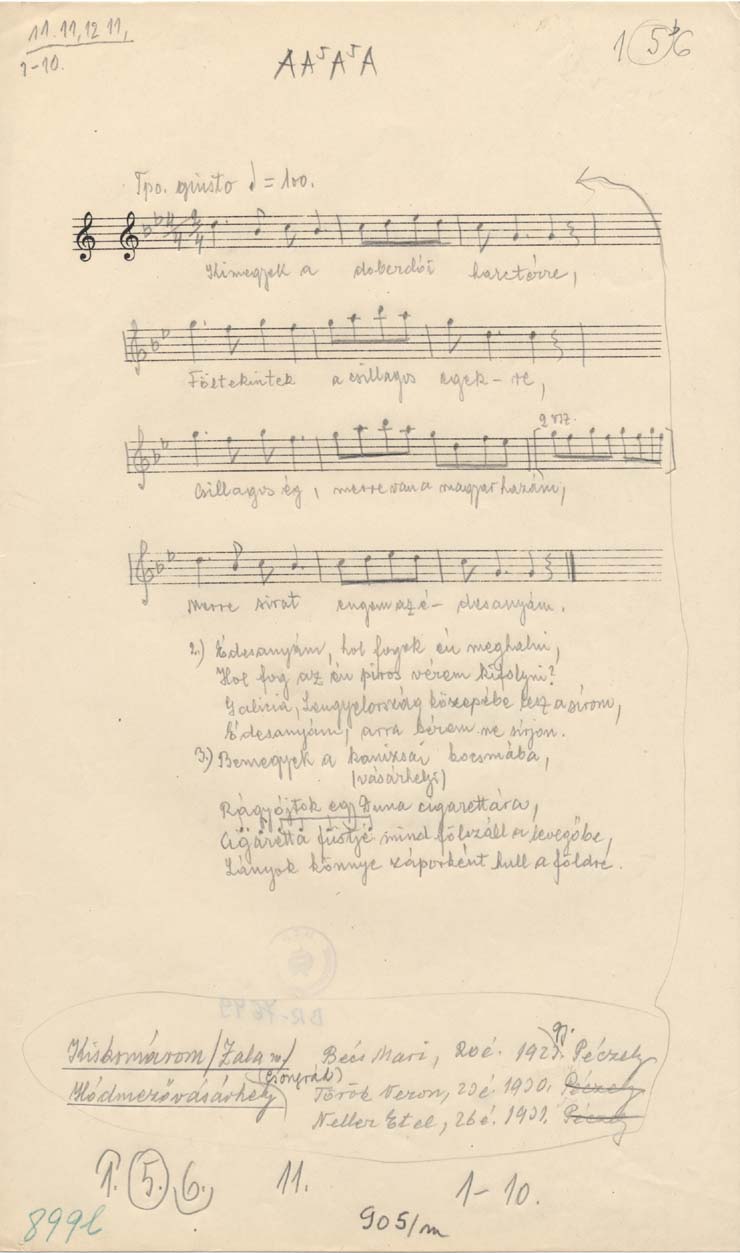 11.11,12 11,
1-10.
A A⁵ A⁵ A
1 5 b6
Tpo. giusto ♩ = 100.
Kimegyek a doberdói harctérre,
Föltekintek a csillagos egek-re,
2 vsz.
Csillagos ég, merre van a magyar hazám,
Merre sirat engem az é- desanyám.
2.) Édesanyám, hol fogok én meghalni,
Hol fog az én piros vérem kifolyni?
Galicia, Lengyelország közepébe lesz a sírom,
Édesanyám, arra kérem ne sírjon.
3.) Bemegyek a kanizsai kocsmába,
(vásárhelyi)
Rágyójtok egy Duna cigarettára,
Cigaretta füstje mind fölszáll a levegőbe,
Lányok könnye záporként hull a földre.
BR-7649
Kiskomárom (Zala m) Beés Mari, 20é. 1929. gy. Péczely
(Csongrád)
Hódmezővásárhely Török Veron, 23é 1930. Péczely
Neller Etel, 26é. 1931. Péczely
1. 5. 6. 11. 1-10.
899l 905/m